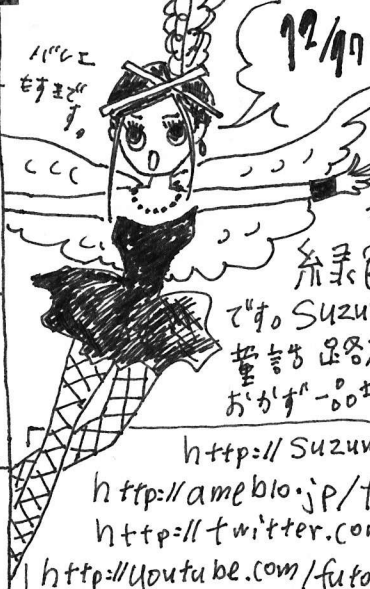 バレエ
もすきで
す。
12/97
緑
です。Suzu
童話 路
おかず一品
http://suzu
http://ameblo.jp/t
http://twitter.co
http://youtube.com/futo